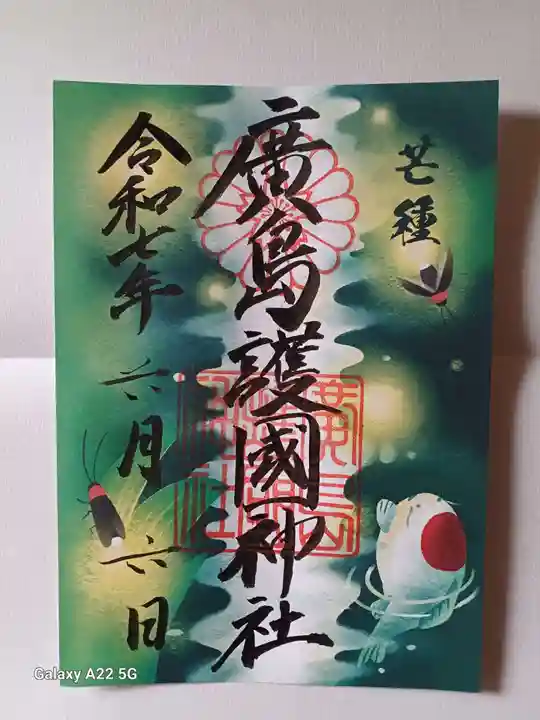 芒種
廣島護國神社
令和七年 六月 六日
Galaxy A22 5G